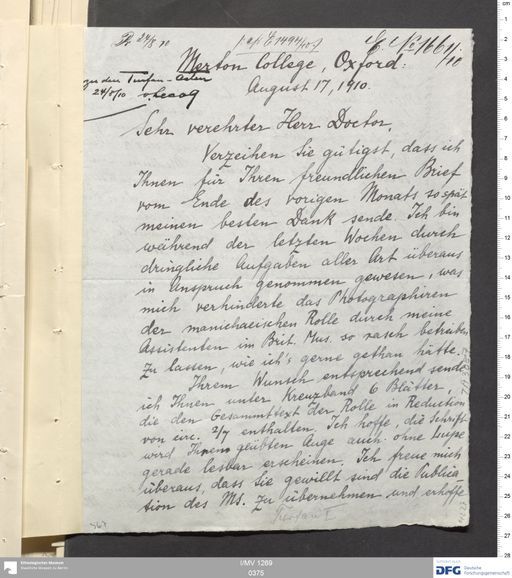 24/8 10
p. e/. E 1494/10
E. No 1664/10
zu den Turfan-Acten
24/8/10 v. Lecoq
Merton College, Oxford:
August 17, 1910.
Sehr verehrter Herr Doctor,
Verzeihen Sie gütigst, dass ich
Ihnen für Ihren freundlichen Brief
vom Ende des vorigen Monats so spät
meinen besten Dank sende. Ich bin
während der letzten Wochen durch
dringliche Aufgaben aller Art überaus
in Anspruch genommen gewesen, was
mich verhinderte das Photographiren
der manichaeischen Rolle durch meine
Assistenten im Brit. Mus. so rasch betreiben
zu lassen, wie ich's gerne gethan hätte.
Ihrem Wunsch entsprechend sende
ich Ihnen unter Kreuzband 6 Blätter,
die den Gesammttext der Rolle in Reduction
von circ. 2/7 enthalten. Ich hoffe, die Schrift
wird Ihrem geübten Auge auch ohne Lupe
gerade lesbar erscheinen. Ich freue mich
überaus, dass sie gewillt sind die Publica
tion des Ms. zu übernehmen und erhoffe
Turfan I
Ethnologisches Museum
Staatliche Museen zu Berlin
I/MV 1269
0375
DFG Deutsche
Forschungsgemeinschaft